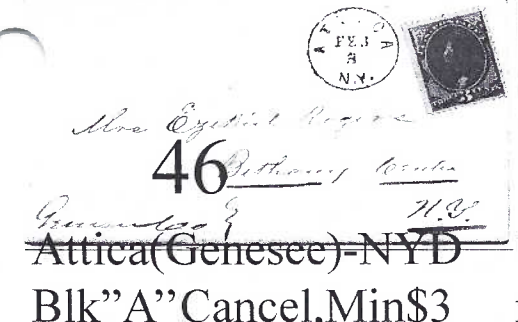 ATTICA
FEB
8
N.Y.
3
Mrs Ezekiel Rogers
46
Bethany Centre
Genesee Co N.Y.
Attica(Genesee)-NYD
Blk”A”Cancel,Min$3